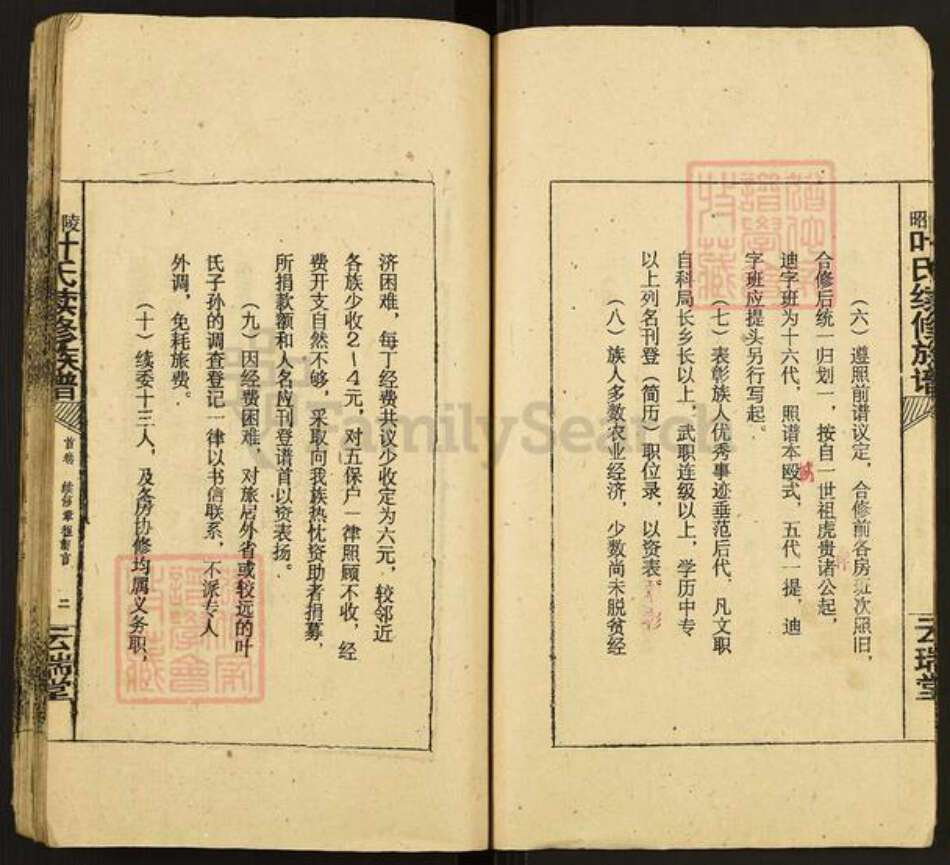 昭
叶氏续修族谱
云瑞堂
（六）遵照前谱议定，合修前各房班次照旧，
合修后统一归划一，按自一世祖虎贵诸公起，
迪字班为十六代，照谱本殴式，五代一提，迪
字班应提头另行写起。
（七）表彰族人优秀事迹垂范后代，凡文职
自科局长乡长以上，武职连级以上，学历中专
以上列名刊登（简历）职位录，以资表
彰
（八）族人多数农业经济，少数尚未脱贫经
济困难，每丁经费共议少收定为六元，较邻近
各族少收2—4元，对五保户一律照顾不收，经
费开支自然不够，采取向我族热忱资助者捐募，
所捐款额和人名应刊登谱首以资表扬。
（九）因经费困难，对旅居外省或较远的叶
氏子孙的调查登记一律以书信联系，不派专人
外调，免耗旅费。
（十）续委十三人，及各房协修均属义务职，
陵
叶氏续修族谱
首卷
二
云瑞堂
谱学会
收藏
谱学会
收藏
FamilySearch